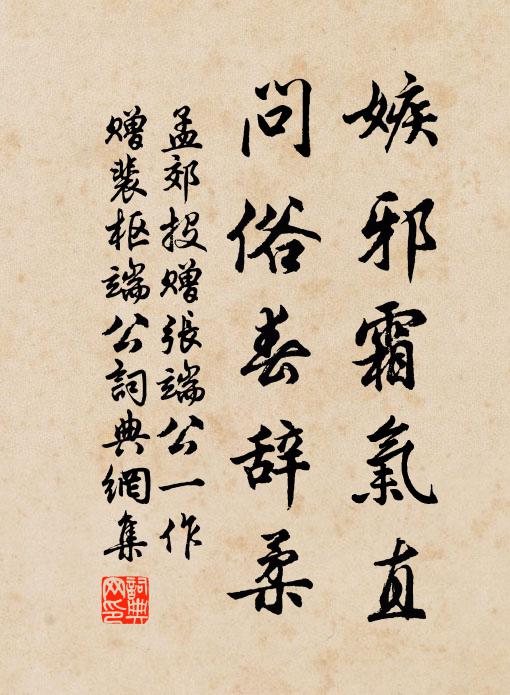 嫉邪霜氣直
問俗春辞柔
孟郊投贈張端公一作
贈裴枢端公詞典網集
詞典网印